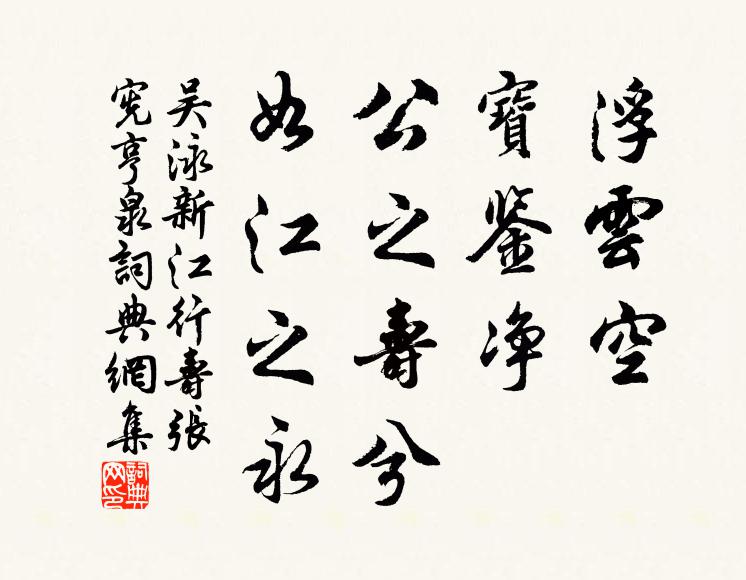 浮雲空
寶鉴净
公之壽兮
如江之永
吴泳新江行壽張
宪亨泉詞典網集
詞典网印